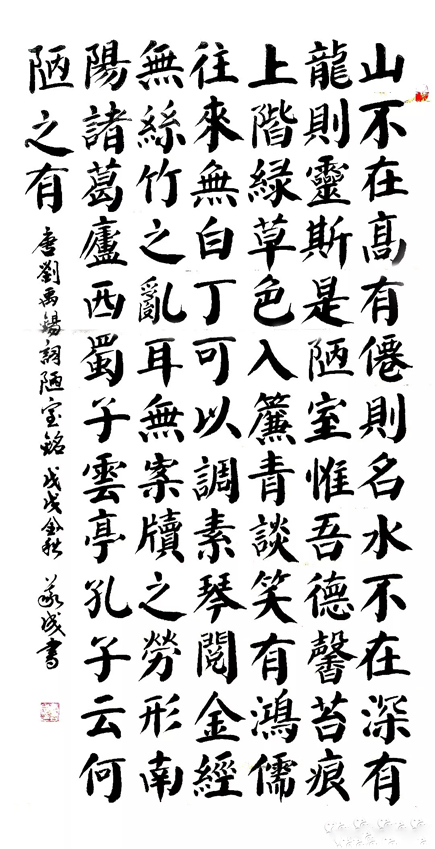 山不在髙有僊則名水不在深有
龍則靈斯是陋室惟吾德馨苔痕
上階緑草色入簾青談笑有鴻儒
往來無白丁可以調素琴閱金經
無絲竹之亂耳無案牘之勞形南
陽諸葛廬西蜀子雲亭孔子云何
陋之有
唐劉禹錫詞陋室銘 戊戌金秋 義成書